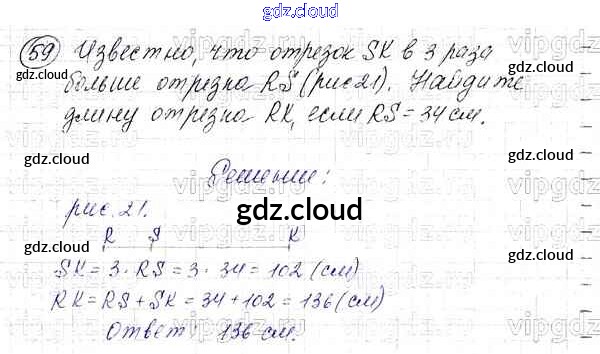 gdz.cloud
59 Известно, что отрезок SK в 3 раза
больше отрезка RS (рис 21). Найдите
длину отрезка RK, если RS = 34 см.
Решение:
рис. 21.
R S K
SK = 3 · RS = 3 · 34 = 102 (см)
RK = RS + SK = 34 + 102 = 136 (см)
Ответ: 136 см.
gdz.cloud
gdz.cloud
gdz.cloud
gdz.cloud
gdz.cloud
gdz.cloud
gdz.cloud